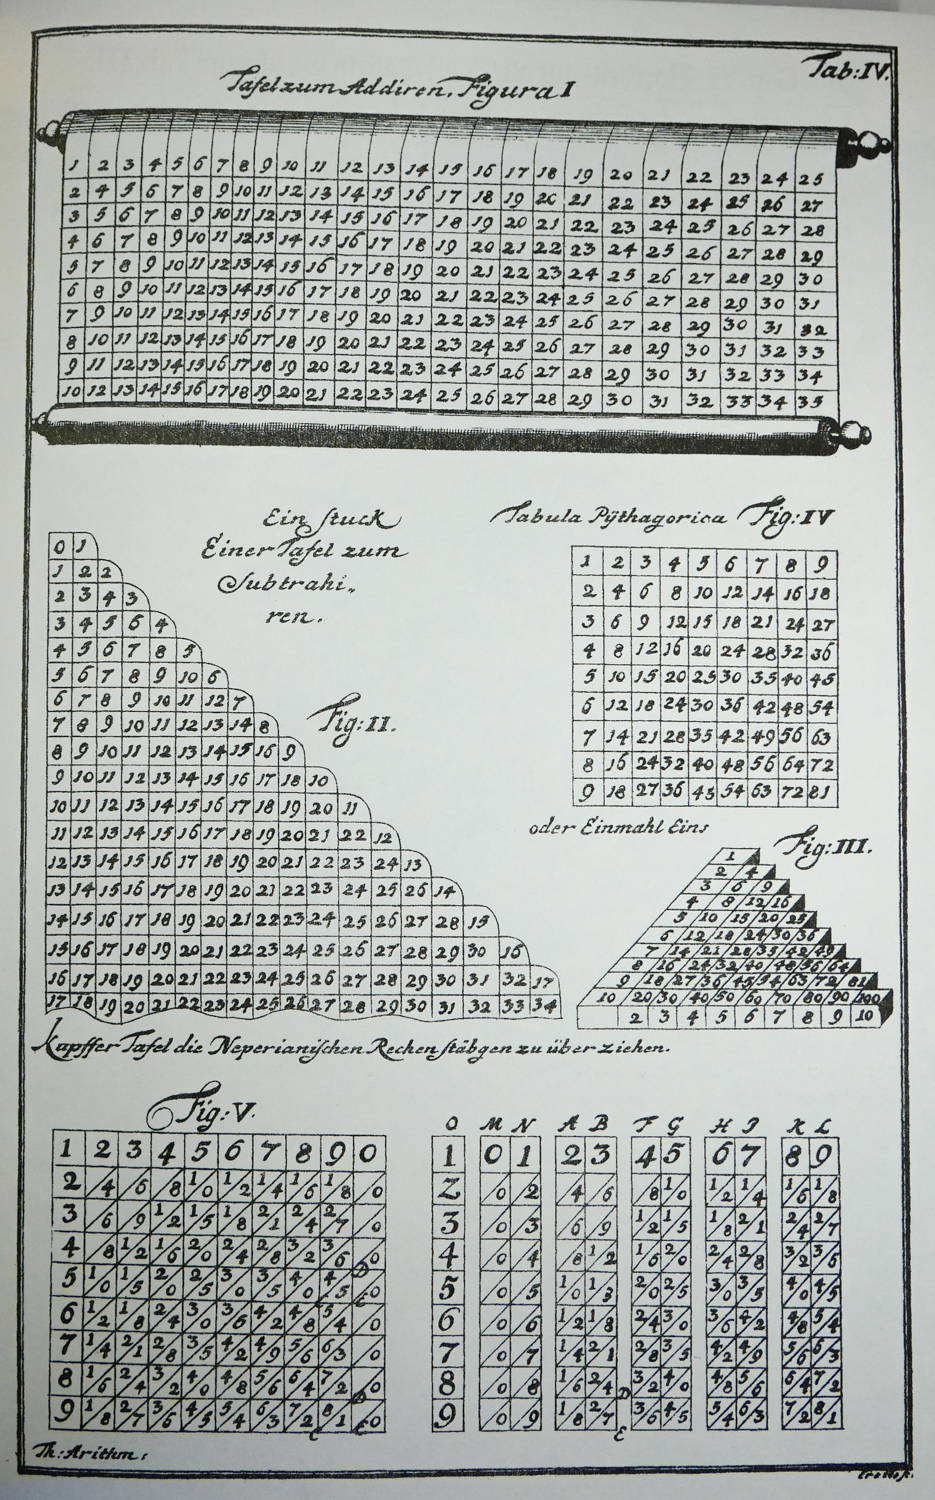 Tab:IV.
Tafel zum Addiren. Figura I
1 2 3 4 5 6 7 8 9 10 11 12 13 14 15 16 17 18 19 20 21 22 23 24 25
2 4 5 6 7 8 9 10 11 12 13 14 15 16 17 18 19 20 21 22 23 24 25 26 27
3 5 6 7 8 9 10 11 12 13 14 15 16 17 18 19 20 21 22 23 24 25 26 27 28
4 6 7 8 9 10 11 12 13 14 15 16 17 18 19 20 21 22 23 24 25 26 27 28 29
5 7 8 9 10 11 12 13 14 15 16 17 18 19 20 21 22 23 24 25 26 27 28 29 30
6 8 9 10 11 12 13 14 15 16 17 18 19 20 21 22 23 24 25 26 27 28 29 30 31
7 9 10 11 12 13 14 15 16 17 18 19 20 21 22 23 24 25 26 27 28 29 30 31 32
8 10 11 12 13 14 15 16 17 18 19 20 21 22 23 24 25 26 27 28 29 30 31 32 33
9 11 12 13 14 15 16 17 18 19 20 21 22 23 24 25 26 27 28 29 30 31 32 33 34
10 12 13 14 15 16 17 18 19 20 21 22 23 24 25 26 27 28 29 30 31 32 33 34 35
Ein stuck
Einer Tafel zum
Subtrahi„
ren.
Fig:II.
0 1
1 2 2
2 3 4 3
3 4 5 6 4
4 5 6 7 8 5
5 6 7 8 9 10 6
6 7 8 9 10 11 12 7
7 8 9 10 11 12 13 14 8
8 9 10 11 12 13 14 15 16 9
9 10 11 12 13 14 15 16 17 18 10
10 11 12 13 14 15 16 17 18 19 20 11
11 12 13 14 15 16 17 18 19 20 21 22 12
12 13 14 15 16 17 18 19 20 21 22 23 24 13
13 14 15 16 17 18 19 20 21 22 23 24 25 26 14
14 15 16 17 18 19 20 21 22 23 24 25 26 27 28 15
15 16 17 18 19 20 21 22 23 24 25 26 27 28 29 30 16
16 17 18 19 20 21 22 23 24 25 26 27 28 29 30 31 32 17
17 18 19 20 21 22 23 24 25 26 27 28 29 30 31 32 33 34
Tabula Pÿthagorica Fig:IV
1 2 3 4 5 6 7 8 9
2 4 6 8 10 12 14 16 18
3 6 9 12 15 18 21 24 27
4 8 12 16 20 24 28 32 36
5 10 15 20 25 30 35 40 45
6 12 18 24 30 36 42 48 54
7 14 21 28 35 42 49 56 63
8 16 24 32 40 48 56 64 72
9 18 27 36 45 54 63 72 81
oder Einmahl Eins
Fig:III.
1
2 4
3 6 9
4 8 12 16
5 10 15 20 25
6 12 18 24 30 36
7 14 21 28 35 42 49
8 16 24 32 40 48 56 64
9 18 27 36 45 54 63 72 81
10 20 30 40 50 60 70 80 90 100
2 3 4 5 6 7 8 9 10
Kapffer Tafel die Neperianischen Rechen stäbgen zu über ziehen.
Fig:V.
1 2 3 4 5 6 7 8 9 0
2 /4 /6 /8 1/0 1/2 1/4 1/6 1/8 /0
3 /6 /9 1/2 1/5 1/8 2/1 2/4 2/7 /0
4 /8 1/2 1/6 2/0 2/4 2/8 3/2 3/6 /0
5 1/0 1/5 2/0 2/5 3/0 3/5 4/0 4/5 /0
6 1/2 1/8 2/4 3/0 3/6 4/2 4/8 5/4 /0
7 1/4 2/1 2/8 3/5 4/2 4/9 5/6 6/3 /0
8 1/6 2/4 3/2 4/0 4/8 5/6 6/4 7/2 /0
9 1/8 2/7 3/6 4/5 5/4 6/3 7/2 8/1 /0
O M N A B F G H I K L
1 0 1 2 3 4 5 6 7 8 9
2 /0 /2 /4 /6 /8 1/0 1/2 1/4 1/6 1/8
3 /0 /3 /6 /9 1/2 1/5 1/8 2/1 2/4 2/7
4 /0 /4 /8 1/2 1/6 2/0 2/4 2/8 3/2 3/6
5 /0 /5 1/0 1/3 2/0 2/5 3/0 3/5 4/0 4/5
6 /0 /6 1/2 1/8 2/4 3/0 3/6 4/2 4/8 5/4
7 /0 /7 1/4 2/1 2/8 3/5 4/2 4/9 5/6 6/3
8 /0 /8 1/6 2/4 3/2 4/0 4/8 5/6 6/4 7/2
9 /0 /9 1/8 2/7 3/6 4/5 5/4 6/3 7/2 8/1
D
E
Th: Arithm: